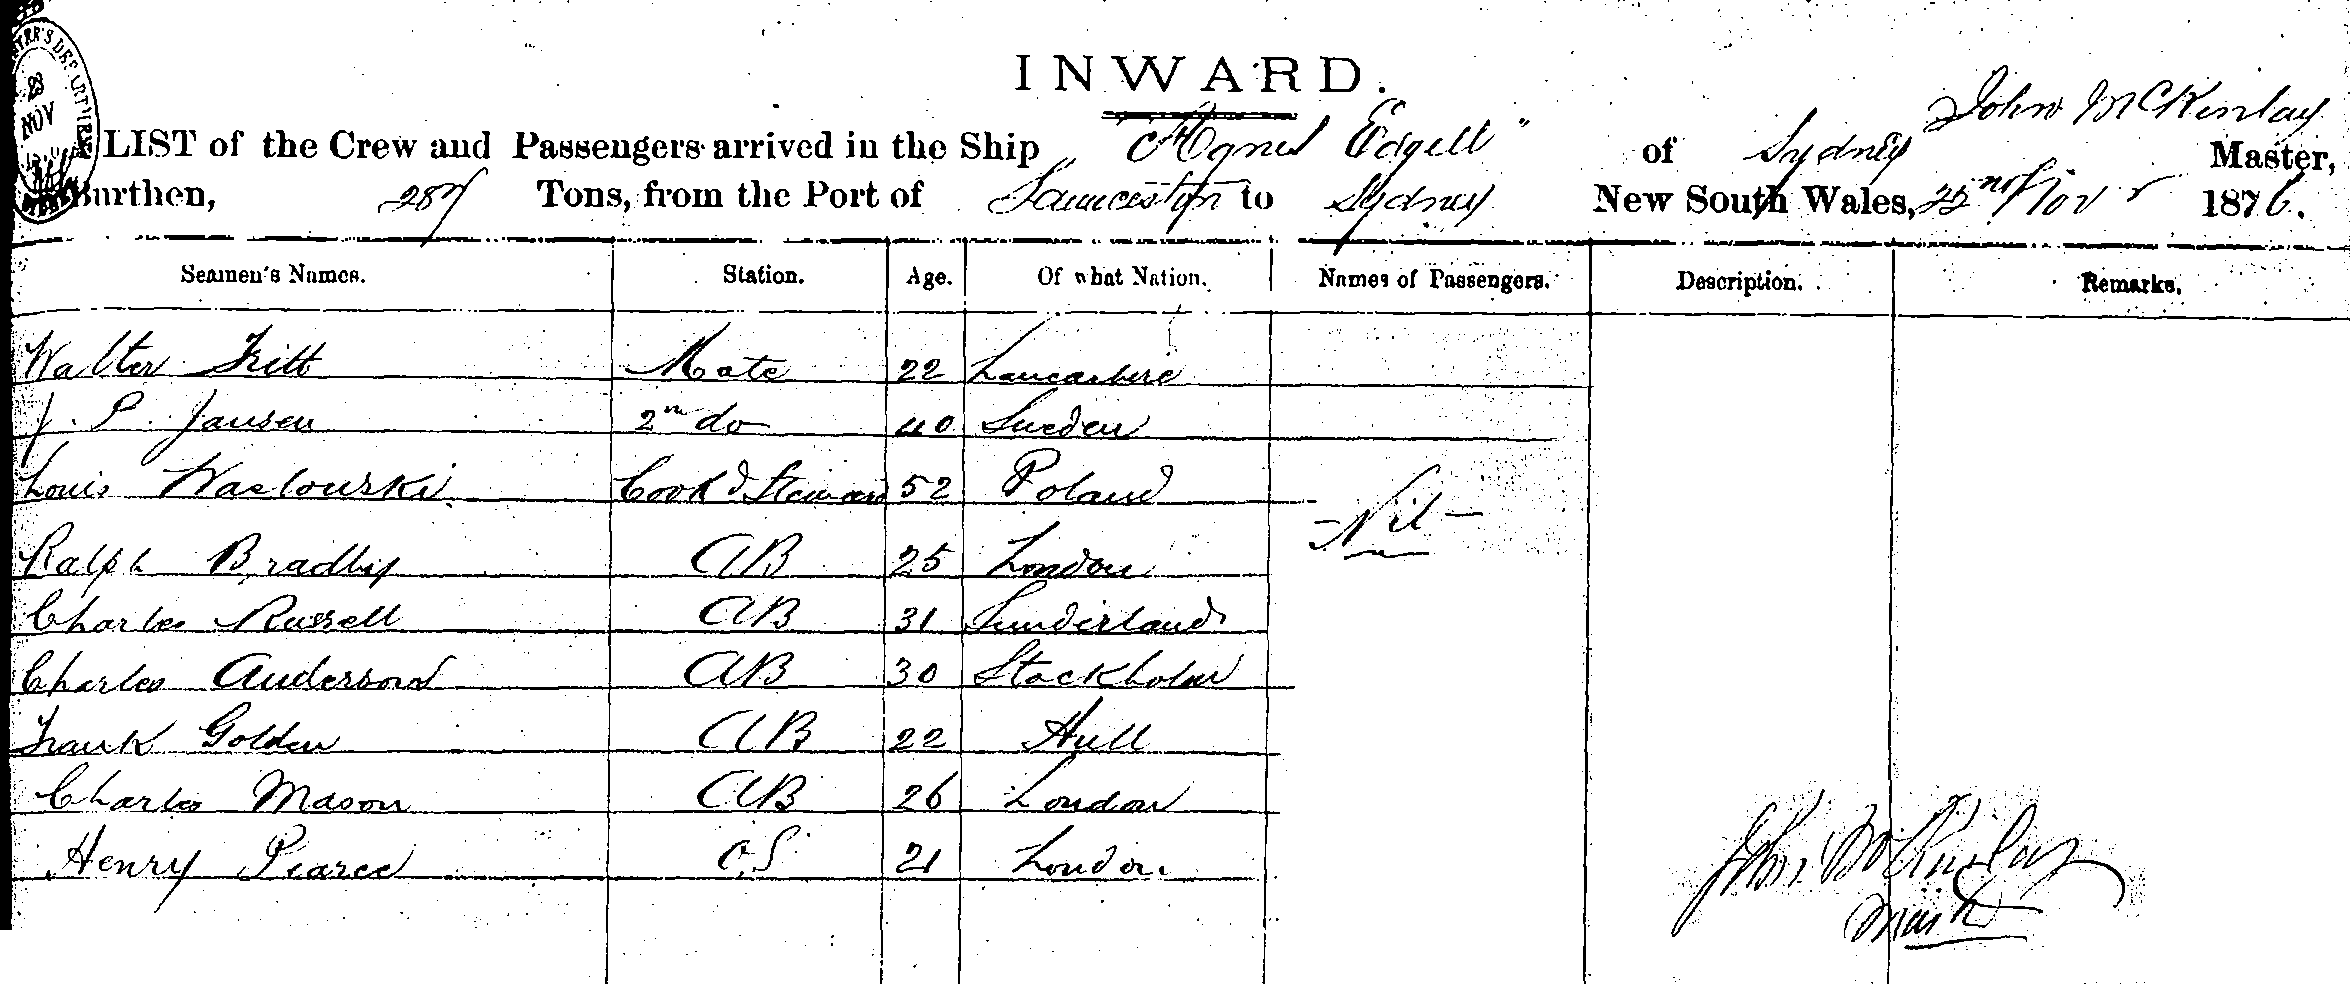 23
NOV
INWARD.
John McKinlay
LIST of the Crew and Passengers arrived in the Ship "Agnes Edgell" of Sydney Master,
Burthen, 287 Tons, from the Port of Launceston to Sydney New South Wales, 22nd Novr 1876.
Seamen's Names. Station. Age. Of what Nation. Names of Passengers. Description. Remarks.
Walter Mate 22 Lancashire
J. P. Jansen 2nd do 40 Sweden
Louis Waslowski Cook & Steward 52 Poland
- Nil -
Ralph Bradby AB 25 London
Charles Russell AB 31 Sunderland
Charles Anderson AB 30 Stockholm
Frank Golden AB 22 Hull
Charles Mason AB 26 London
Henry Pearce O.S 21 London
John McKinlay